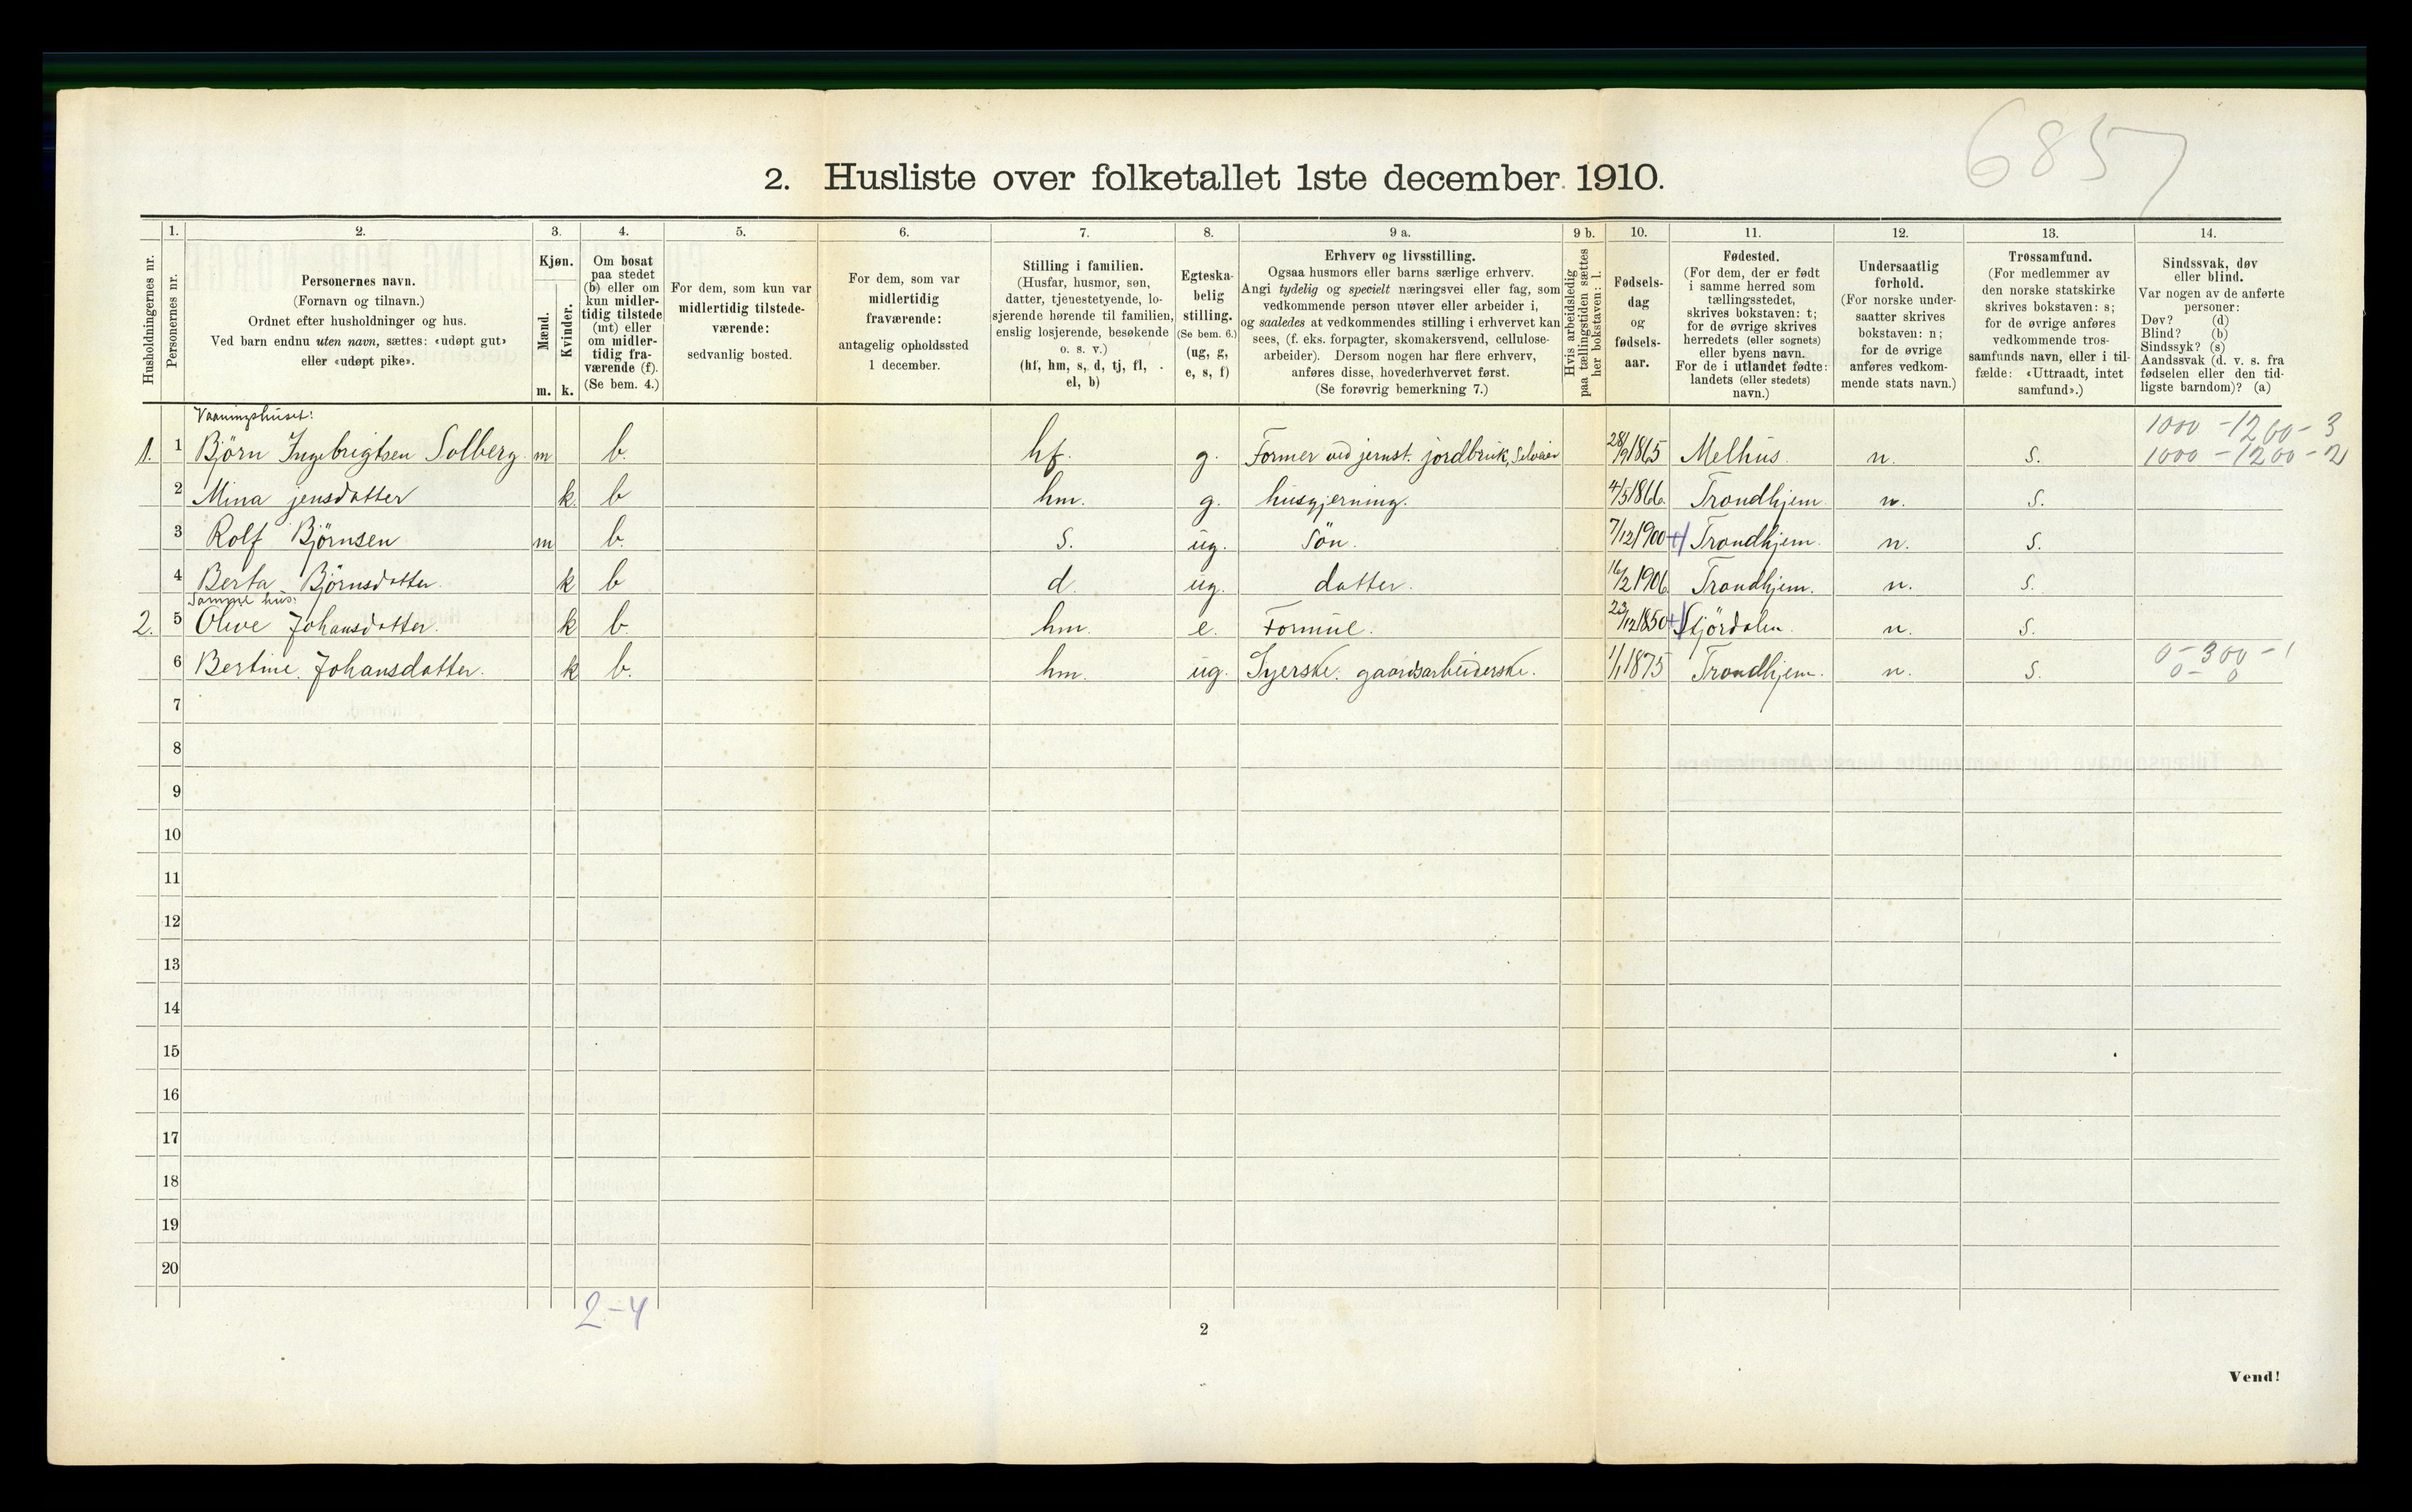 6857
2. Husliste over folketallet 1ste december 1910.
Husholdningernes nr.
1.
Personernes nr.
2.
Personernes navn.
(Fornavn og tilnavn.)
Ordnet efter husholdninger og hus.
Ved barn endnu uten navn, sættes: «udøpt gut»
eller «udøpt pike».
3.
Kjøn.
Mænd.
m.
Kvinder.
k.
4.
Om bosat
paa stedet
(b) eller om
kun midler-
tidig tilstede
(mt) eller
om midler-
tidig fra-
værende (f).
(Se bem. 4.)
5.
For dem, som kun var
midlertidig tilstede-
værende:
sedvanlig bosted.
6.
For dem, som var
midlertidig
fraværende:
antagelig opholdssted
1 december.
7.
Stilling i familien.
(Husfar, husmor, søn,
datter, tjenestetyende, lo-
sjerende hørende til familien,
enslig losjerende, besøkende
o. s. v.)
(hf, hm, s, d, tj, fl,
el, b)
8.
Egteska-
belig
stilling.
(Se bem. 6.)
(ug, g,
e, s, f)
9 a.
Erhverv og livsstilling.
Ogsaa husmors eller barns særlige erhverv.
Angi tydelig og specielt næringsvei eller fag, som
vedkommende person utøver eller arbeider i,
og saaledes at vedkommendes stilling i erhvervet kan
sees, (f. eks. forpagter, skomakersvend, cellulose-
arbeider). Dersom nogen har flere erhverv,
anføres disse, hovederhvervet først.
(Se forøvrig bemerkning 7.)
9 b.
Hvis arbeidsledig
paa tællingstiden sættes
her bokstaven: l.
10.
Fødsels-
dag
og
fødsels-
aar.
11.
Fødested.
(For dem, der er født
i samme herred som
tællingsstedet,
skrives bokstaven: t;
for de øvrige skrives
herredets (eller sognets)
eller byens navn.
For de i utlandet fødte:
landets (eller stedets)
navn.)
12.
Undersaatlig
forhold.
(For norske under-
saatter skrives
bokstaven: n;
for de øvrige
anføres vedkom-
mende stats navn.)
13.
Trossamfund.
(For medlemmer av
den norske statskirke
skrives bokstaven: s;
for de øvrige anføres
vedkommende tros-
samfunds navn, eller i til-
fælde: «Uttraadt, intet
samfund».)
14.
Sindssvak, døv
eller blind.
Var nogen av de anførte
personer:
Døv? (d)
Blind? (b)
Sindssyk? (s)
Aandssvak (d. v. s. fra
fødselen eller den tid-
ligste barndom)? (a)
Vaaningshuset:
1000 - 1200 - 3
1. 1 Björn Ingebrigtsen Solberg. m b. hf. g. Former ved jernst. jordbruk, Selveier 28/9 1865 Melhus. n. s. 1000 - 1200 - 2
2 Mina jensdatter k. b hm. g. husgjerning. 4/5 1866. Trondhjem n. s.
3 Rolf Björnsen m b. s. ug. Sön. 7/12 1900 Trondhjem. n. s.
4 Berta Björnsdatter. k b d. ug. datter. 16/2 1906 Trondhjem. n. s.
Samme hus:
2. 5 Olive Johansdatter. k b. hm. e. Formue. 23/12 1850 Stjördalen. n. s.
6 Bertine Johansdatter. k b. hm. ug. Syerske. gaardsarbeiderske. 1/1 1875 Trondhjem. n. s. 0 - 300 - 1
0 - 0
7
8
9
10
11
12
13
14
15
16
17
18
19
20
2-4
2
Vend!